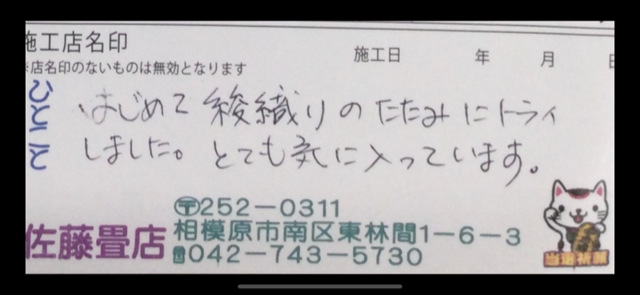 施工店名印
施工日 年 月 日
店名印のないものは無効となります
ひとこと
はじめて綾織りのたたみにトライ
しました。とても気に入っています。
〒252-0311
佐藤畳店
相模原市南区東林間1-6-3
☎042-743-5730
当選祈願